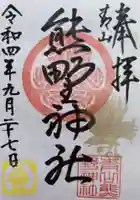 奉拝
青山
熊野神社
令和四年九月二十七日